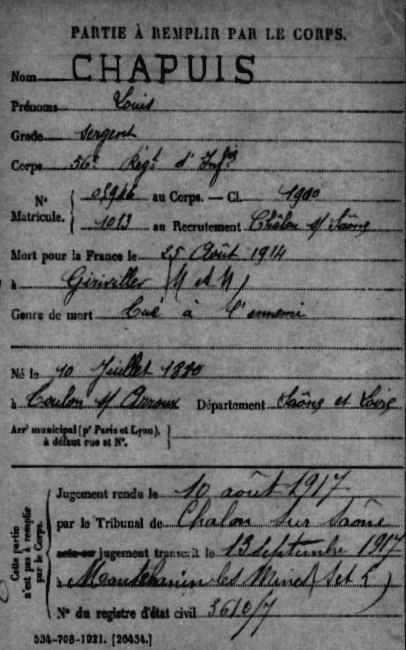 PARTIE À REMPLIR PAR LE CORPS.
Nom CHAPUIS
Prénoms Louis
Grade Sergent
Corps 56e Régt d'Infie
Nº Matricule. { 05946 au Corps. — Cl. 1900
1013 au Recrutement Châlon s/ Saône
Mort pour la France le 25 Août 1914
à Giriviller (M & M)
Genre de mort Tué à l'ennemi
Né le 10 Juillet 1880
à Toulon s/ Arroux Département Saône et Loire
Arrt municipal (pr Paris et Lyon), à défaut rue et Nº.
Cette partie n'est pas à remplir par le Corps.
Jugement rendu le 10 août 1917
par le Tribunal de Chalon sur Saône
acte ou jugement transcrit le 13 septembre 1917
à Montchanin les Mines (S et L)
Nº du registre d'état civil 3610/7
534-708-1921. [26434.]